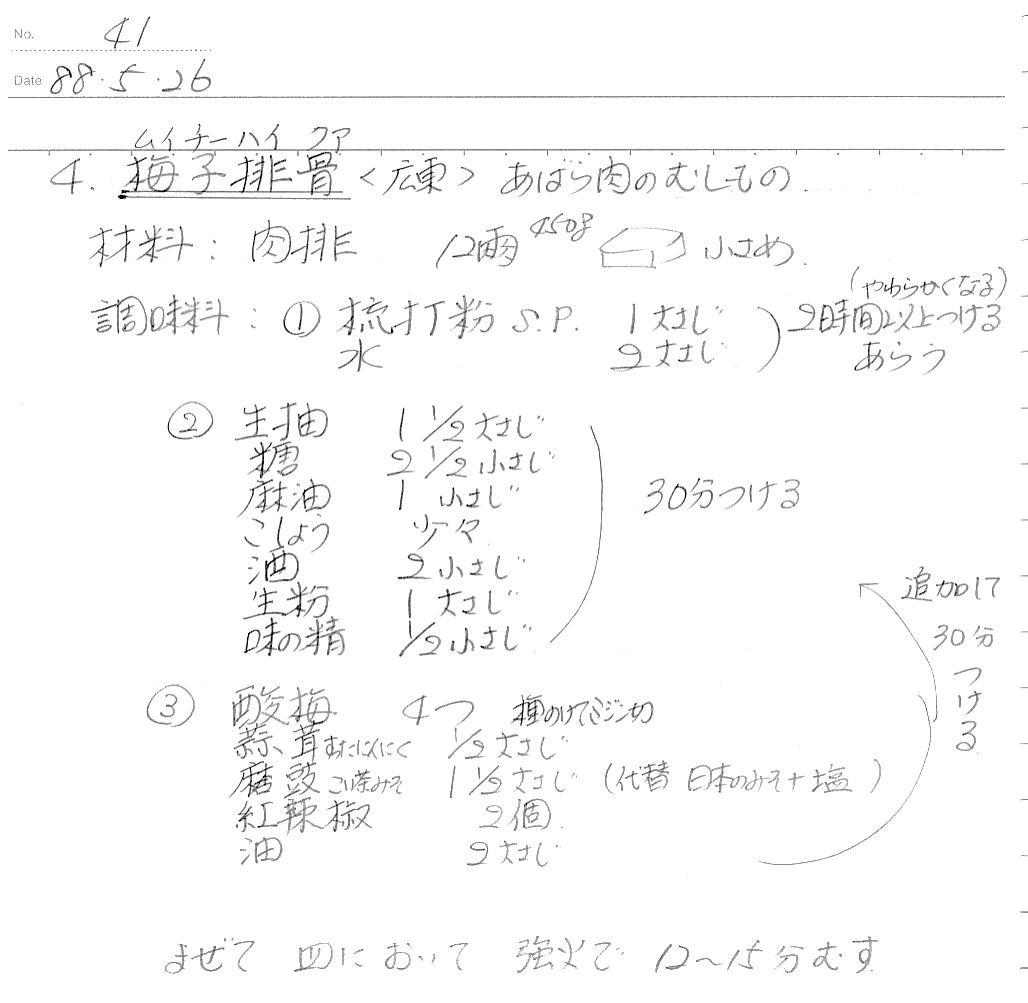 No. 41
Date 88.5.26
ムイチーハイ クァ
4. 梅子排骨 <広東> あばら肉のむしもの
材料: 肉排 12両 450g 小さめ
(やわらかくなる)
調味料: ① 梳打粉 S.P. 1大さじ 2時間以上つける
水 2大さじ あらう
② 生抽 1 1/2 大さじ
糖 2 1/2 小さじ
麻油 1 小さじ 30分つける
こしょう 少々
酒 2小さじ
生粉 1 大さじ ← 追加して
味の精 1/2小さじ 30分
つける
③ 酸梅 4つ 種のけてミジン切
蒜茸 1/2 大さじ
磨豉 こい茶みそ 1 1/2 大さじ (代替 日本のみそ+塩)
紅辣椒 2個
油 2大さじ
まぜて 皿において 強火で 12〜15分むす